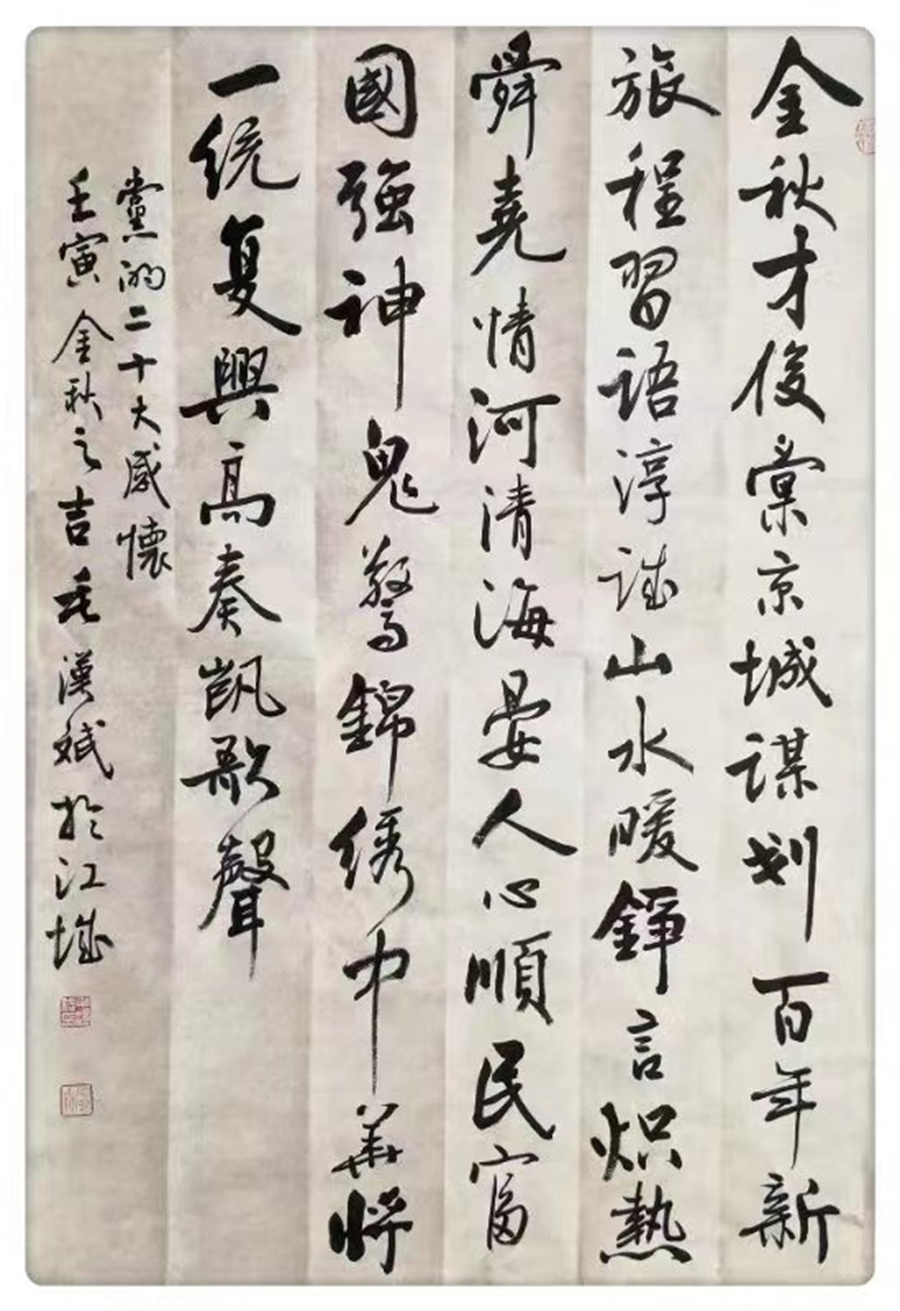 金秋才俊棠京城谋划百年新
旅程習语淳誌山水暖錚言炽熱
舜堯情河清海晏人心順民富
國強神鬼驚錦绣中華将
一统复興高奏凯歌聲
黨的二十大感懷
壬寅金秋之吉毛漢斌於江城